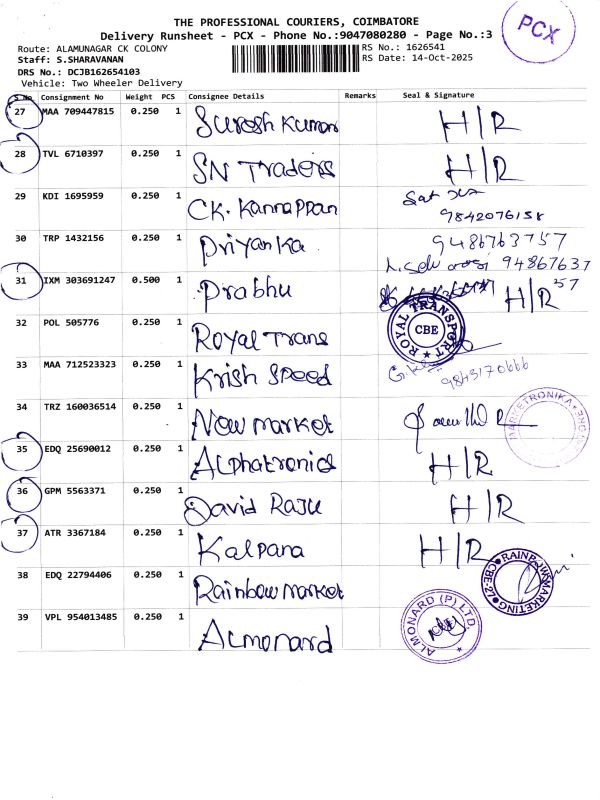 THE PROFESSIONAL COURIERS, COIMBATORE
Delivery Runsheet - PCX - Phone No.:9047080280 - Page No.:3
PCX
Route: ALAMUNAGAR CK COLONY RS No.: 1626541
Staff: S.SHARAVANAN RS Date: 14-Oct-2025
DRS No.: DCJB162654103
Vehicle: Two Wheeler Delivery
S No. Consignment No Weight PCS Consignee Details Remarks Seal & Signature
27 MAA 709447815 0.250 1 Suresh Kumar H/R
28 TVL 6710397 0.250 1 SN Traders H/R
29 KDI 1695959 0.250 1 CK. Kannappan
9842076158
30 TRP 1432156 0.250 1 Priyanka 9486763757
31 IXM 303691247 0.500 1 Prabhu H/R
32 POL 505776 0.250 1 Royal Trans
ROYAL TRANSPORT CBE
33 MAA 712523323 0.250 1 Krish Speed
9843170666
34 TRZ 160036514 0.250 1 New market
35 EDQ 25690012 0.250 1 Alphatronics H/R
36 GPM 5563371 0.250 1 David Raju H/R
37 ATR 3367184 0.250 1 Kalpana H/R
38 EDQ 22794406 0.250 1 Rainbow market
39 VPL 954013485 0.250 1 Almonard
ALMONARD (P) LTD.